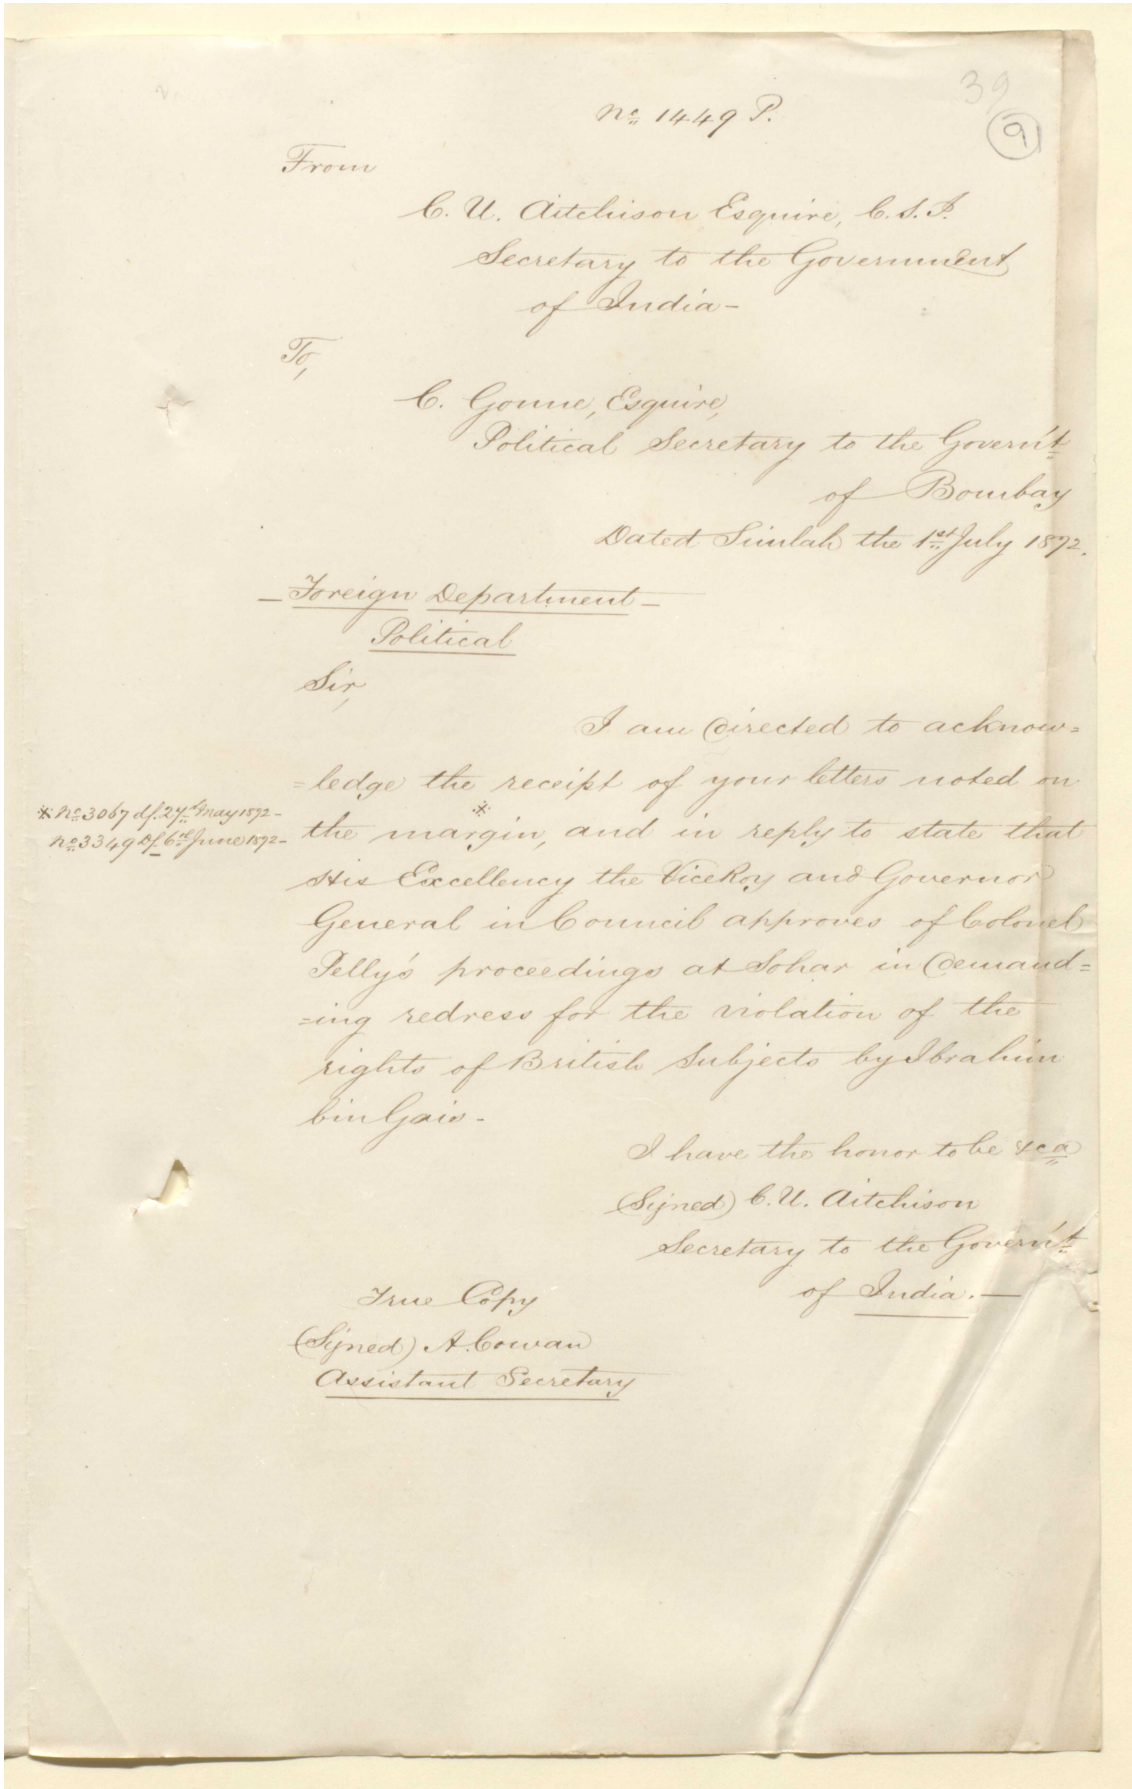 39
9
No. 1449 P.
From
C. U. Aitchison Esquire, C. S. I.
Secretary to the Government
of India -
To,
C. Gonne, Esquire,
Political Secretary to the Govern't
of Bombay
Dated Simlah the 1st July 1872.
- Foreign Department -
Political
Sir,
I am directed to acknow=
=ledge the receipt of your letters noted on
※ No. 3067 df. 27th May 1872 -
No. 3349 df. 6th June 1872 -
the margin,※ and in reply to state that
His Excellency the ViceRoy and Governor
General in Council approves of Colonel
Pelly's proceedings at Sohar in demand=
=ing redress for the violation of the
rights of British Subjects by Ibrahim
bin Gais -
I have the honor to be &ca
(Signed) C. U. Aitchison
Secretary to the Govern't
of India. -
True Copy
(Signed) A. Cowan
Assistant Secretary